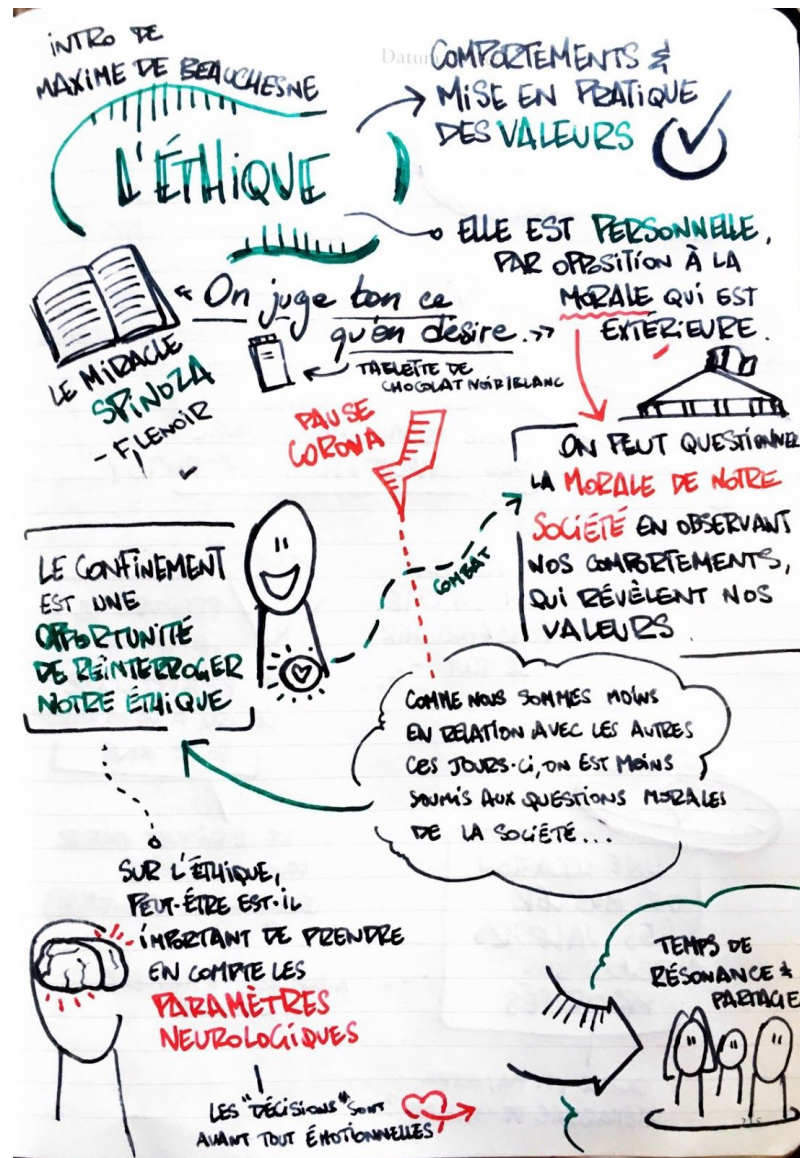 INTRO DE
MAXIME DE BEAUCHESNE
L'ÉTHIQUE
Datum
COMPORTEMENTS &
MISE EN PRATIQUE
DES VALEURS
ELLE EST PERSONNELLE,
PAR OPPOSITION À LA
MORALE QUI EST
EXTÉRIEURE.
« On juge bon ce
qu'on désire. »
TABLETTE DE
CHOCOLAT NOIR/BLANC
LE MIRACLE
SPINOZA
- F. LENOIR
PAUSE
CORONA
ON PEUT QUESTIONNER
LA MORALE DE NOTRE
SOCIÉTÉ EN OBSERVANT
NOS COMPORTEMENTS,
QUI RÉVÈLENT NOS
VALEURS.
COMBAT
LE CONFINEMENT
EST UNE
OPPORTUNITÉ
DE RÉINTERROGER
NOTRE ÉTHIQUE
COMME NOUS SOMMES MOINS
EN RELATION AVEC LES AUTRES
CES JOURS-CI, ON EST MOINS
SOUMIS AUX QUESTIONS MORALES
DE LA SOCIÉTÉ...
SUR L'ÉTHIQUE,
PEUT-ÊTRE EST-IL
IMPORTANT DE PRENDRE
EN COMPTE LES
PARAMÈTRES
NEUROLOGIQUES
LES "DÉCISIONS" SONT
AVANT TOUT ÉMOTIONNELLES
TEMPS DE
RÉSONANCE &
PARTAGE